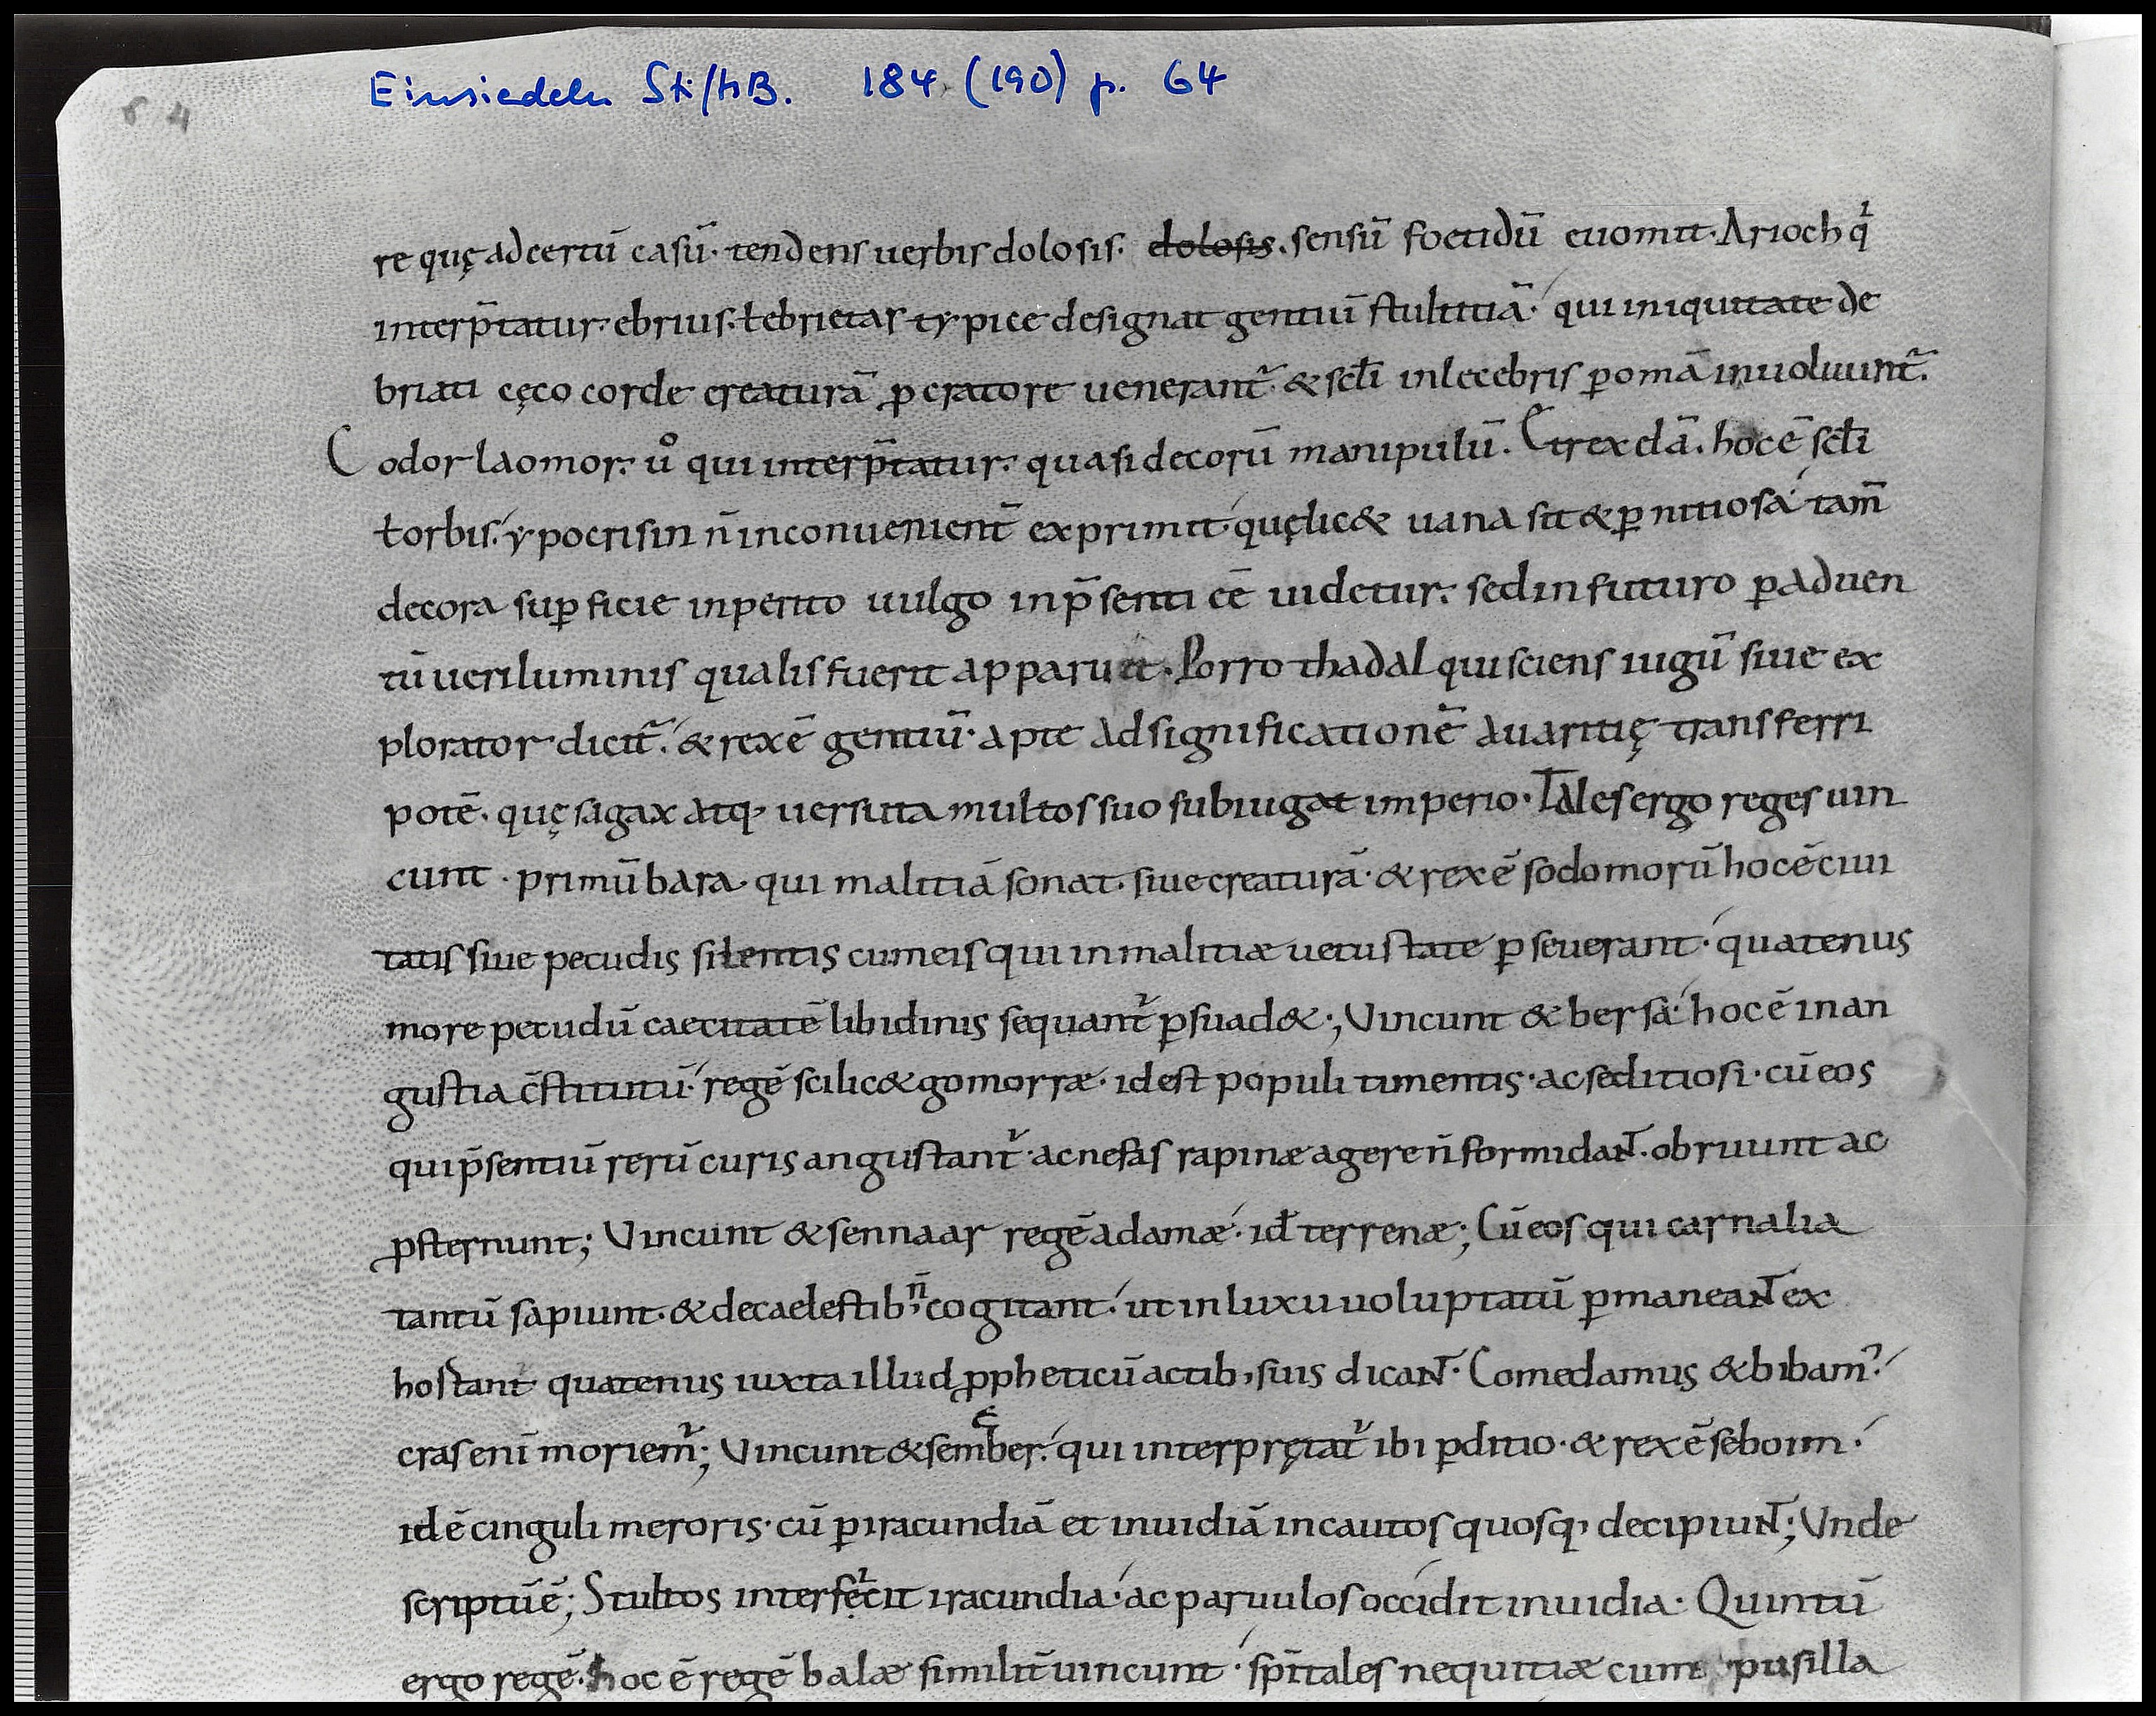 64
Einsiedeln StiftsB. 184 (190) p. 64
re quę ad certū casū· tendens uerbis dolosis· dolosis. sensū foetidū euomit· Arioch q̓
interp̄tatur· ebrius· ł ebrietas typice designat gentiū stultitiā· qui iniquitate de
briati cęco corde creaturā ꝓ cratore uenerant̄· & scłi inlecebris ꝑ omā inuoluunt̄.
Codorlaomor· uͦ qui interp̄tatur· quasi decorū manipulū. Et rex elā. hoc ē scłi
ł orbis· ypocrisin n̄ inconuenient̄ exprimit· quę lic& uana sit & ꝑnitiosa· tam̄
decora suꝑficie inperito uulgo in p̄senti eē uidetur· sed in futuro ꝑ aduen
tū ueri luminis qualis fuerit apparuit. Porro thadal qui sciens iugū siue ex
plorator dicit̄· & rex ē gentiū· apte ad significationē auaritię transferri
potē· quę sagax atq; uersuta multos suo subiugat imperio· Tales ergo reges uin
cunt· primū bara· qui malitiā sonat· siue creaturā· & rex ē sodomorū hoc ē ciui
tatis siue pecudis silentis cum eis qui in malitiæ uetustate ꝑseuerant· quatenus
more pecudū caecitatē libidinis sequant̄ ꝑsuad&; Vincunt & bersa· hoc ē in an
gustia c̄stitutū· regē scilic& gomorræ· id est populi timentis· ac seditiosi· cū eos
qui p̄sentiū rerū curis angustant̄· ac nefas rapinæ agere n̄ formidant· obruunt ac
ꝓsternunt; Vincunt & sennaar regē adamæ· id ÷ terrenæ; Cū eos qui carnalia
tantū sapiunt· & de caelestib; n̄ cogitant· ut in luxu uoluptatū ꝑmaneant ex
hostant quatenus iuxta illud ꝓpheticū actib; suis dicant· Comedamus & bibam᾿·
cras eni moriem̄; Vincunt & semeber· qui interpręta̅t ibi ꝑditio· & rex ē seboim·
id ē cinguli meroris· cū ꝑ iracundiā et inuidiā incautos quosq; decipiunt; Vnde
scriptū ē; Stultos interfecit iracundia· ac paruulos occidit inuidia· Quintū
ergo regē· hoc ē regē balæ similit̄ uincunt· sp̄itales nequitiæ cum pusilla